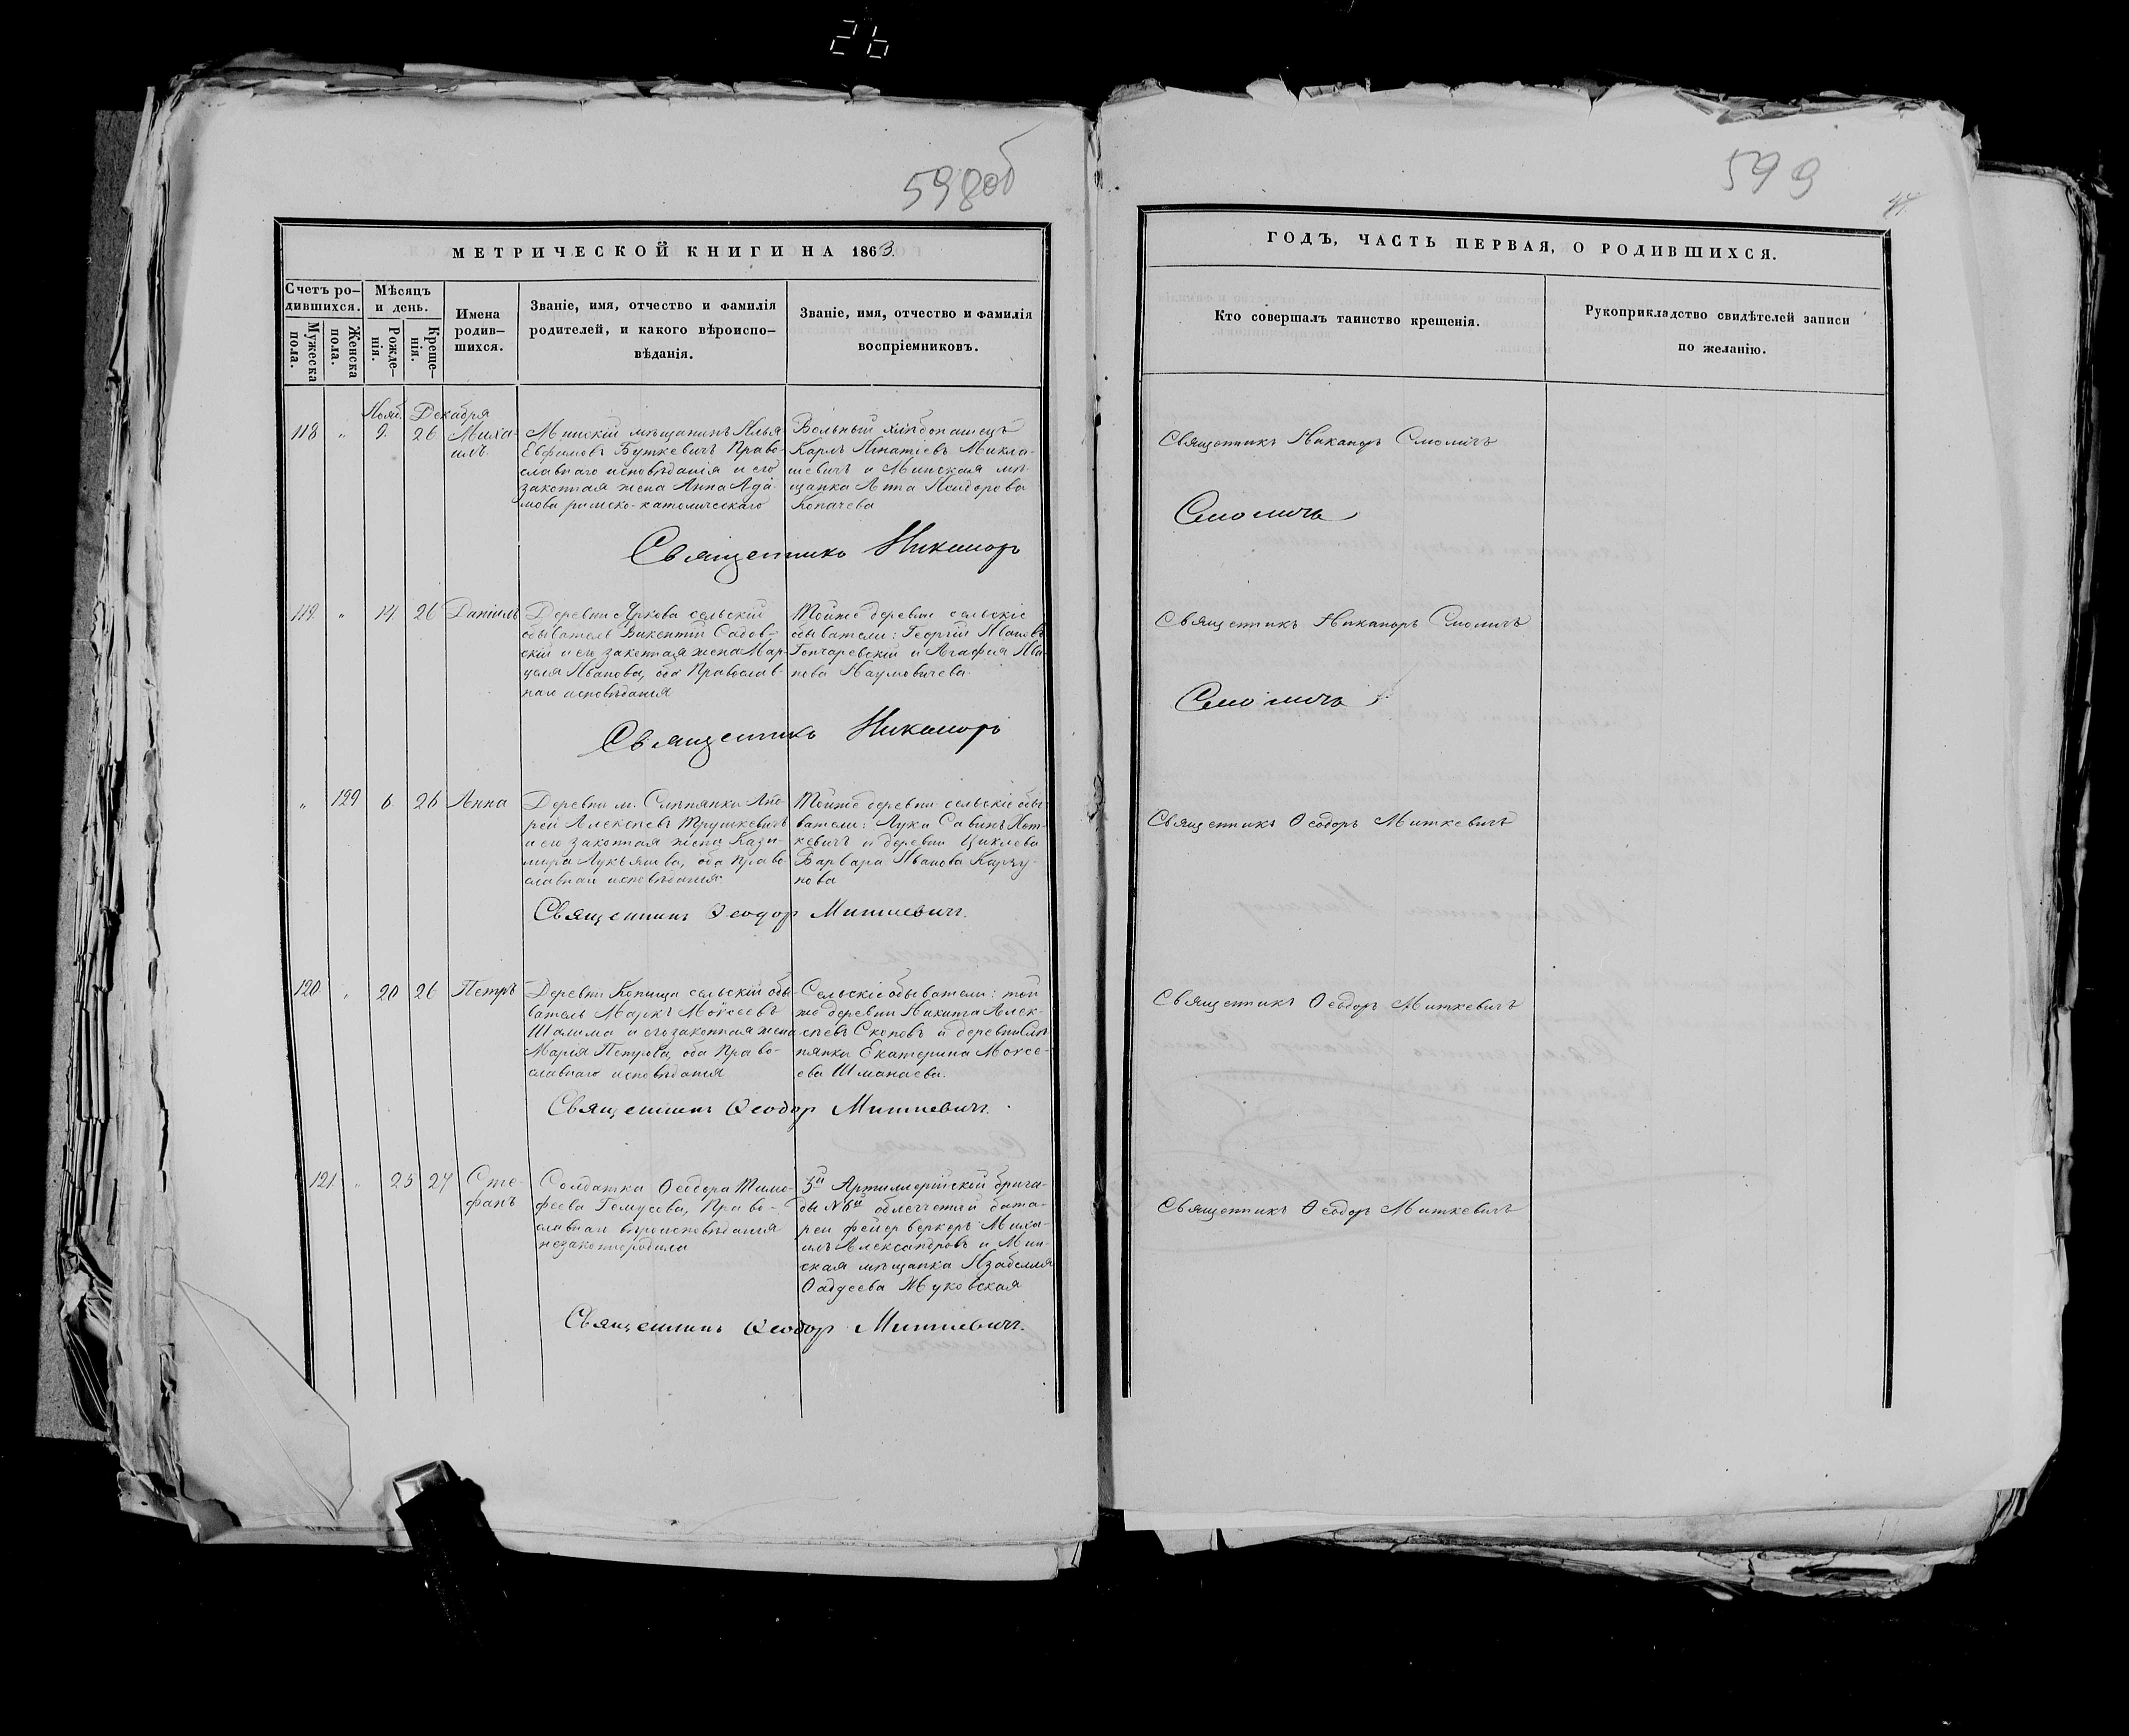 26
598об
МЕТРИЧЕСКОЙ КНИГИ НА 1863.
Счетъ ро-
дившихся.
Мужеска
пола.
Женска
пола.
Мѣсяцъ
и день.
Рожде-
нія.
Креще-
нія.
Имена
родив-
шихся.
Званіе, имя, отчество и фамилія
родителей, и какого вѣроиспо-
вѣданія.
Званіе, имя, отчество и фамилія
воспріемниковъ.
Нояб. Декабря
118 " 9. 26 Миха-
илъ
Минскій мѣщанинъ Илья
Евфимовъ Буткевичъ Право-
славнаго исповѣданія и его
законная жена Анна Ада-
мова римско-католическаго
Вольный хлѣбопашецъ
Карлъ Игнатіевъ Микла-
шевичъ и Минская мѣ-
щанка Анна Исидорова
Копачева
Священникъ Никаноръ
119. " 14. 26 Даніилъ
Деревни сельскій
обыватель Викентій Садов-
скій и его законная жена Мар-
целя Иванова, оба Православ-
наго исповѣданія
Тойже деревни сельскіе
обыватели: Георгій Ивановъ
Гончаревскій и Агафія Ива-
нова Наумовичева.
Священникъ Никаноръ
" 129 6. 26 Анна
Деревни м. Слѣпянки Анд-
рей Алексѣевъ Трушкевичъ
и его законная жена Кази-
мира Лукьянова, оба Право-
славнаго исповѣданія
Тойже деревни сельскіе обы-
ватели: Лука Савинъ
кевичъ и деревни
Варвара Иванова
нова
Священникъ Ѳеодоръ Миткевичъ.
120. " 20 26 Петръ
Деревни Копища сельскій обы-
ватель Маркъ Моѵсеевъ
Шалима и его законная жена
Марія Петрова, оба Право-
славнаго исповѣданія
Сельскіе обыватели: той
же деревни Никита Алек-
сѣевъ Скоповъ и деревни Слѣ-
пянки Екатерина Моѵсе-
ева Шманаева.
Священникъ Ѳеодоръ Миткевичъ.
121. " 25 27 Сте-
фанъ
Солдатка Ѳеодора Тимо-
феева Гемусева, Право-
славнаго вѣроисповѣданія
незаконнородила
3й Артиллерійскій брига-
ды № 6й облегченной бата-
реи фейерверкеръ Миха-
илъ Александровъ и Мин-
ская мѣщанка Изабелла
Ѳаддеева Жуковская
Священникъ Ѳеодоръ Миткевичъ.
599
ГОДЪ, ЧАСТЬ ПЕРВАЯ, О РОДИВШИХСЯ.
Кто совершалъ таинство крещенія.
Рукоприкладство свидѣтелей записи
по желанію.
Священникъ Никаноръ Смоличъ
Смоличъ
Священникъ Никаноръ Смоличъ
Смоличъ
Священникъ Ѳеодоръ Миткевичъ
Священникъ Ѳеодоръ Миткевичъ
Священникъ Ѳеодоръ Миткевичъ